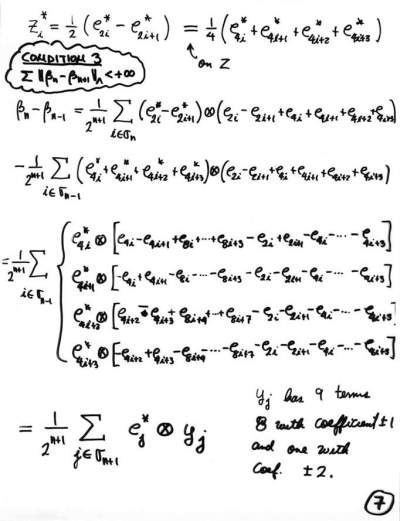 Z_i^* = 1/2 (e_{2i}^* - e_{2i+1}^*) = 1/4 (e_{4i}^* + e_{4i+1}^* + e_{4i+2}^* + e_{4i+3}^*)
on Z
CONDITION 3
Σ ‖β_n - β_{n+1}‖_n < +∞
β_n - β_{n-1} = 1/2^{n+1} Σ_{i∈σ_n} (e_{2i}^* - e_{2i+1}^*) ⊗ (e_{2i} - e_{2i+1} + e_{4i} + e_{4i+1} + e_{4i+2} + e_{4i+3})
- 1/2^{n+1} Σ_{i∈σ_{n-1}} (e_{4i}^* + e_{4i+1}^* + e_{4i+2}^* + e_{4i+3}^*) ⊗ (e_{2i} - e_{2i+1} + e_{4i} + e_{4i+1} + e_{4i+2} + e_{4i+3})
e_{4i}^* ⊗ [e_{4i} - e_{4i+1} + e_{8i} + ··· + e_{8i+3} - e_{2i} + e_{2i+1} - e_{4i} - ··· - e_{4i+3}]
e_{4i+1}^* ⊗ [-e_{4i} + e_{4i+1} - e_{8i} - ··· - e_{8i+3} - e_{2i} - e_{2i+1} - e_{4i} - ··· - e_{4i+3}]
= 1/2^{n+1} Σ_{i∈σ_{n-1}} {
e_{4i+2}^* ⊗ [e_{4i+2} - e_{4i+3} + e_{8i+4} + ··· + e_{8i+7} - e_{2i} - e_{2i+1} - e_{4i} - ··· - e_{4i+3}]
e_{4i+3}^* ⊗ [-e_{4i+2} + e_{4i+3} - e_{8i+4} - ··· - e_{8i+7} - e_{2i} - e_{2i+1} - e_{4i} - ··· - e_{4i+3}]
= 1/2^{n+1} Σ_{j∈σ_{n+1}} e_j^* ⊗ y_j
y_j has 9 terms
8 with coefficient ±1
and one with
coef. ±2.
7